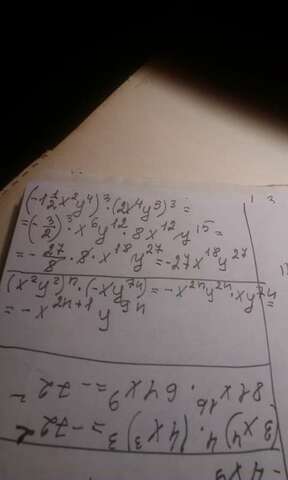 (-1 1/2 x²y⁴)³·(2x⁴y⁵)³=
=(-3/2)³·x⁶y¹²·8x¹²y¹⁵=
=-27/8·8·x¹⁸y²⁷=-27x¹⁸y²⁷
(x²y²)ⁿ·(-xy⁷ⁿ)=-x²ⁿy²ⁿ·xy⁷ⁿ=
=-x²ⁿ⁺¹y⁹ⁿ
(3x⁴)⁴·(4x³)³=-72
81x¹⁶·64x⁹=-72